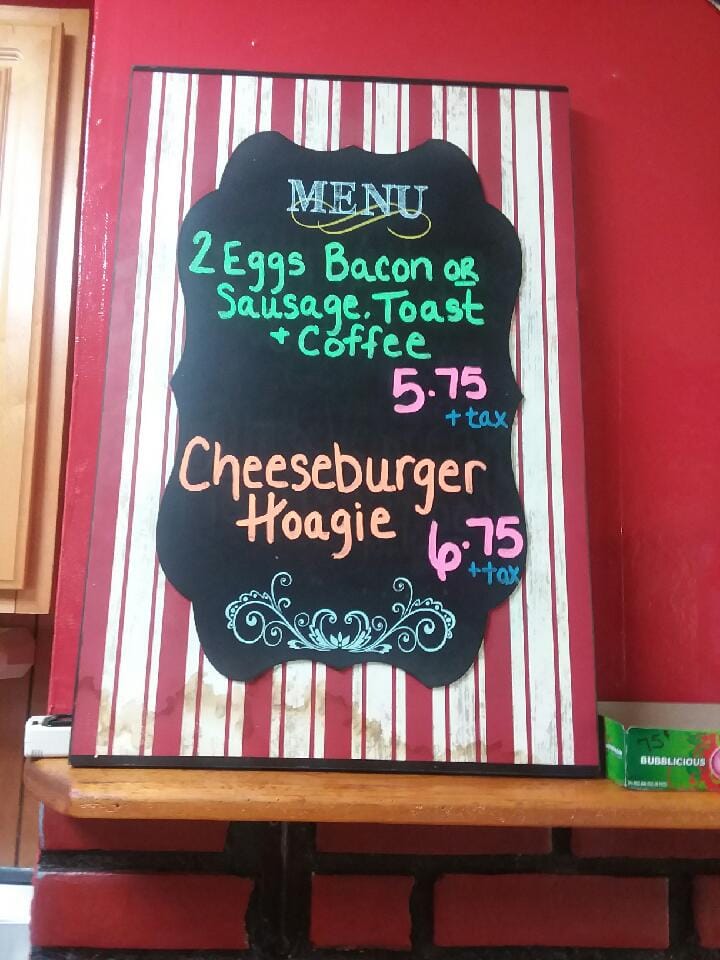 MENU
2 Eggs Bacon OR
Sausage. Toast
+ Coffee
5.75
+ tax
Cheeseburger
Hoagie
6.75
+ tax
75¢
BUBBLICIOUS